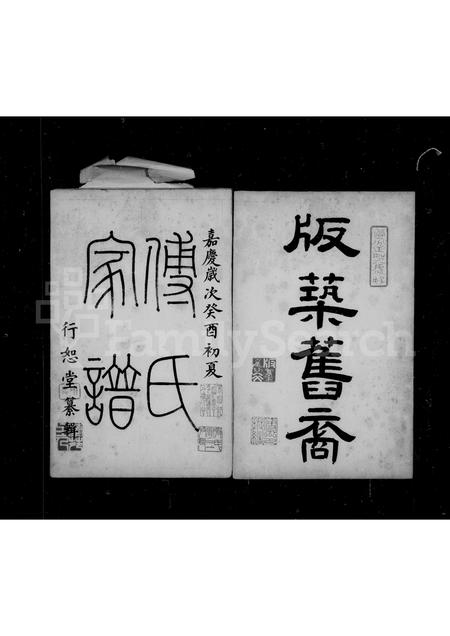 版築舊裔
嘉慶歲次癸酉初夏
傅氏
家譜
行恕堂纂輯
FamilySearch